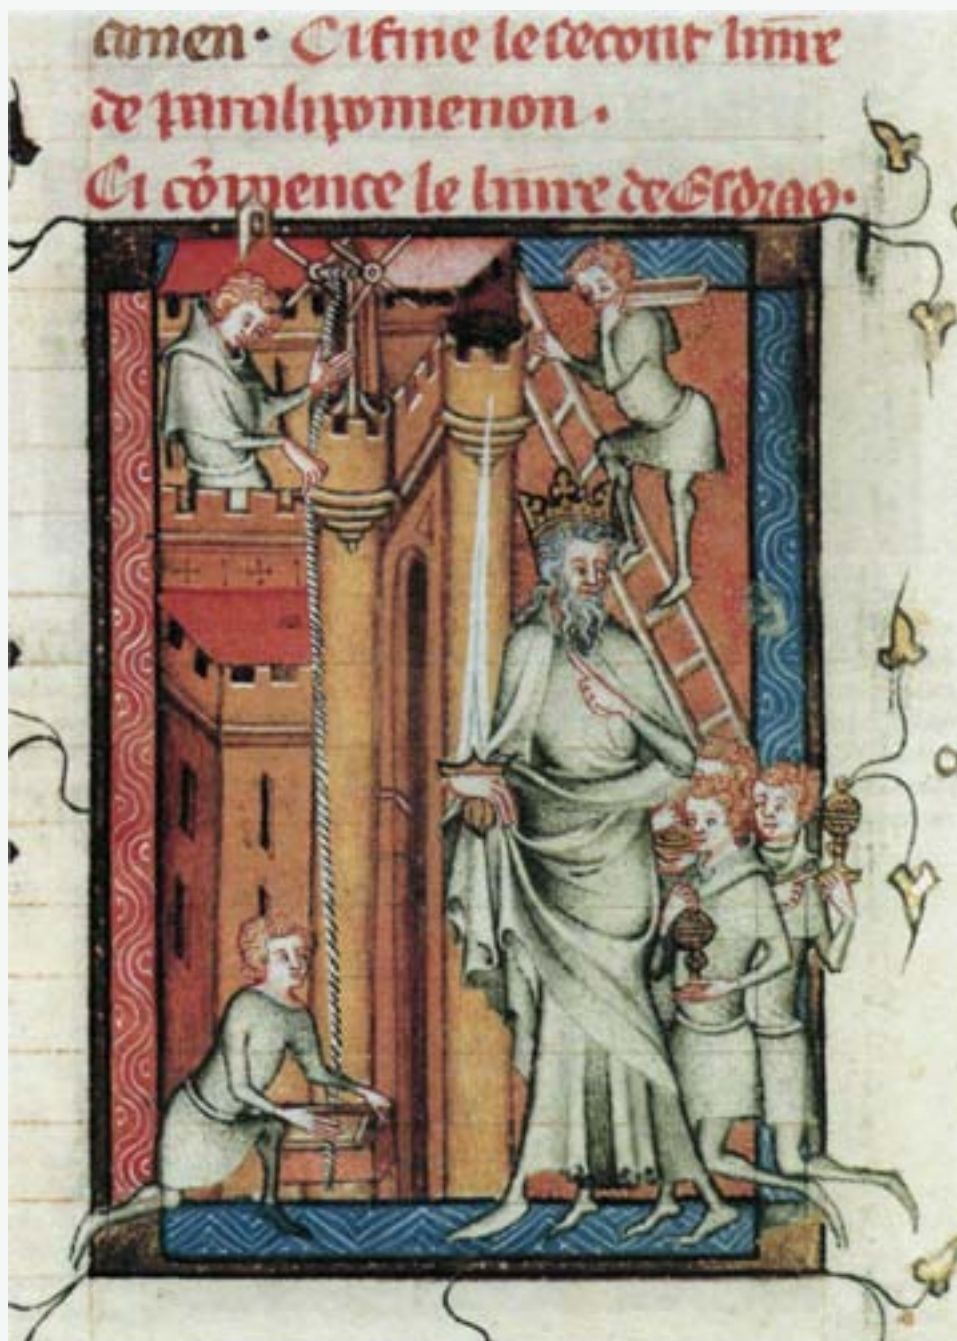 amen. Ci fine le secont liure
de paralipomenon.
Ci cōmence le liure de Esdras.